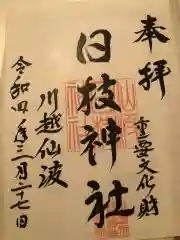 奉拝
重要文化財
日枝神社
川越仙波
令和四年三月二十七日